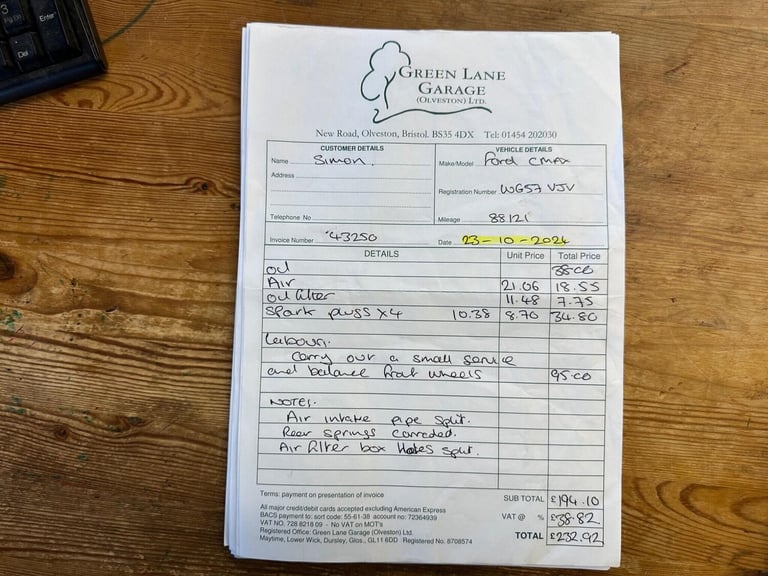 3
PgDn
Enter
Del
GREEN LANE
GARAGE
(OLVESTON) LTD.
New Road, Olveston, Bristol. BS35 4DX Tel: 01454 202030
CUSTOMER DETAILS
VEHICLE DETAILS
Name Simon.
Make/Model Ford CMAX
Address
Registration Number WG57 VJV
Telephone No
Mileage 88121
Invoice Number 43250
Date 23-10-2024
DETAILS Unit Price Total Price
Oil 38.00
Air 21.06 18.55
oil filter 11.48 7.75
Spark plugs x4 10.38 8.70 34.80
Labour.
Carry out a small service
and balance front wheels 95.00
NOTES.
Air intake pipe split.
Rear springs corroded.
Air filter box split.
Terms: payment on presentation of invoice
SUB TOTAL £194.10
All major credit/debit cards accepted excluding American Express
BACS payment to: sort code: 55-61-38 account no: 72364939
VAT @ % £38.82
VAT NO. 728 8218 09 - No VAT on MOT's
Registered Office: Green Lane Garage (Olveston) Ltd.
TOTAL £232.92
Maytime, Lower Wick, Dursley, Glos., GL11 6DD Registered No. 8708574